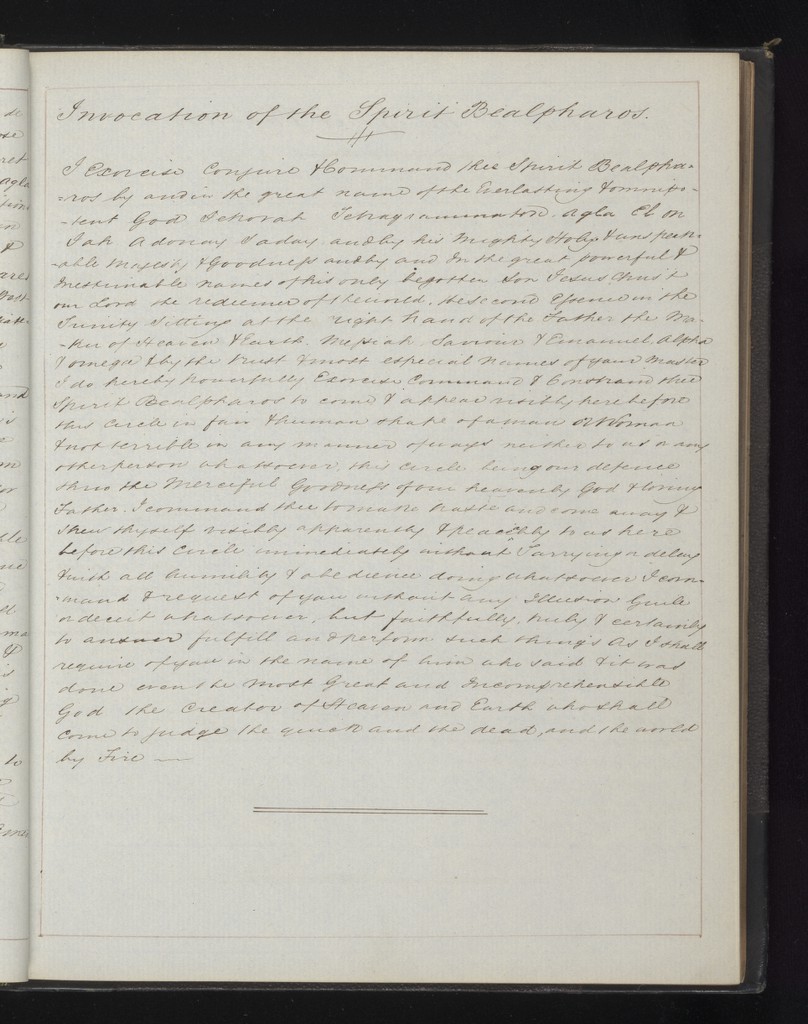 Invocation of the Spirit Bealpharos.
I Exorcise Conjure & Command thee Spirit Bealpha-
=ros by and in the great name of the Everlasting & omnipo-
-tent God Jehovah Tetragrammaton. Agla El on
Jah Adonay Saday, and by his Mighty Holy & unspeak-
-able Majesty & Goodness and by and In the great powerful &
Inestimable names of his only begotten Son Jesus Christ
our Lord the redeemer of the world, the second Essence in the
Trinity sitting at the right hand of the Father the Ma-
-ker of Heaven & Earth. Messiah, Saviour & Emanuel, Alpha
& omega & by the trust & most especial Names of your Master
I do hereby powerfully Exorcise, Command & Constrain thee
Spirit Bealpharos to come & appear visibly here before
this Circle in fair & human shape of a man or Woman
& not terrible in any manner of ways neither to us or any
other person whatsoever, this circle being our defence
thro the Merciful Goodness of our heavenly God & loving
Father. I command thee to make haste and come away &
shew thyself visibly apparently & peacebly to us here
before this Circle immediately without Tarrying or delay
& with all humility & obedience doing whatsoever I com-
-mand & request of you without any Illusion Guile
or deceit whatsoever, but faithfully, truly & certainly
to answer fulfill and perform such things as I shall
require of you in the name of him who said & it was
done even the Most Great and Incomprehensible
God the Creator of Heaven and Earth who shall
come to judge the quick and the dead, and the world
by Fire —